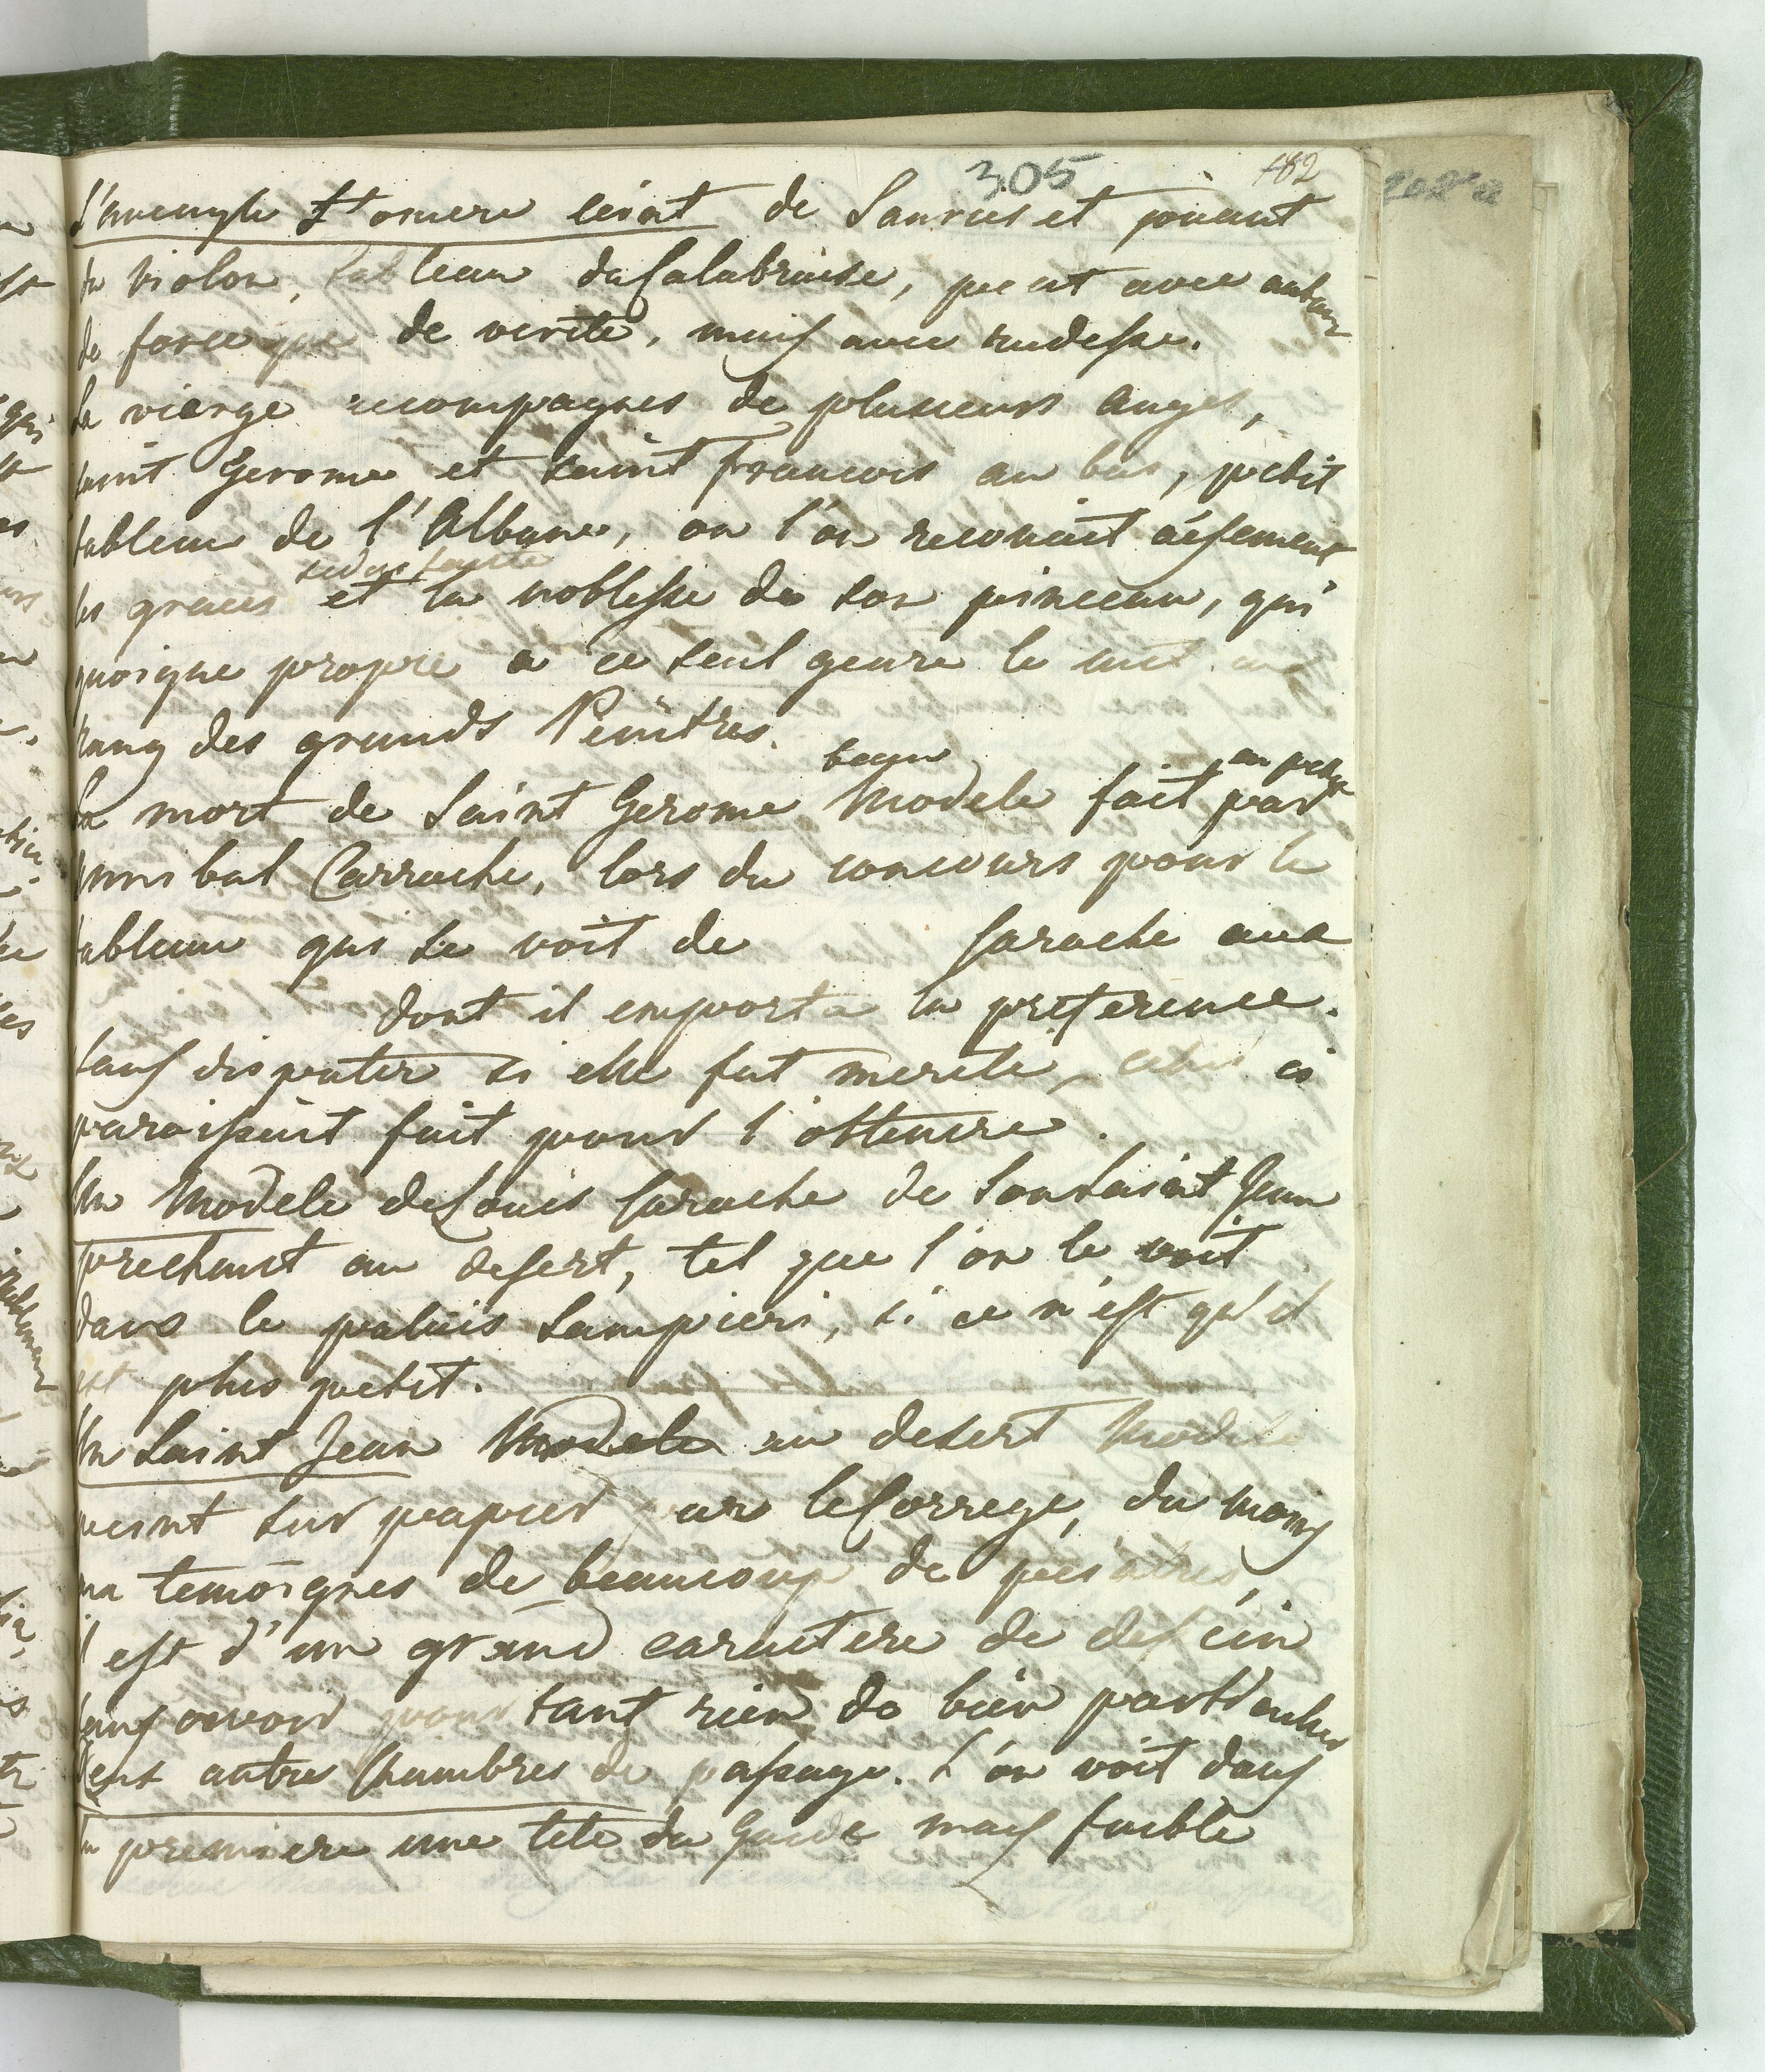 305 182
L'aveugle Homere ceint de Lauries et jouant
du violon, tableau du Calabraise, peint avec autant
de force que de verite, mais avec rudesse.
La vierge accompagnes de plusieurs anges,
saint Gerome et saint francois au bas, petit
tableau de l'Albane, ou l'on reconait aisement
seduisante
les graces et la noblesse de son pinceau, qui
quoique propre a ce seul genre le met au
rang des grands Peintres.
beau en petit
La mort de Saint Gerome Modele fait par
Annibal Carrache, lors du concours pour le
tableau qui se voit de Carache aux
dont il emporta la preference.
sans disputer si elle fut merite, celui ci
paraissait fait pour l'ottenire.
Un Modele de Louis Carache de Son saint Jean
prechant au desert, tel que l'on le voit
dans le palais Sampieri, si ce n'est qu'il
est plus petit.
Un Saint Jean Modele au desert Modele
peint sur papier par le Correge, du moins
aux temoignes de beaucoup de peintres,
il est d'un grand caractere de dessein
sans avoir pour tant rien de bien particulier
Deux autres Chambres de passage. L'on voit dans
la premiere une tete du Guide mais faible